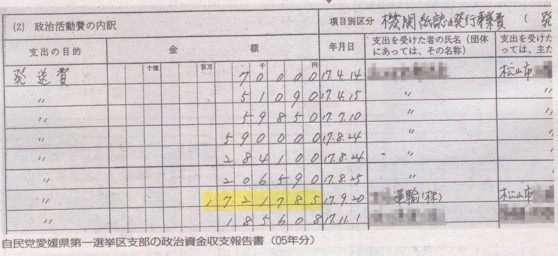 (2) 政治活動費の内訳 項目別区分 機関紙誌の発行事業費 (発
支出の目的 金 額 年月日 支出を受けた者の氏名(団体にあっては、その名称) 支出を受けた っては、主た
十億 百万 千 円
発送費 70000 17.4.14 松山市
〃 51090 17.4.15 〃 〃
〃 59850 17.7.10 〃 〃
〃 590000 17.8.24 〃 〃
〃 284100 17.8.24 〃 〃
〃 206590 17.8.25 〃 〃
〃 1721785 17.9.20 運輸(株) 松山市
〃 185608 17.11.1
自民党愛媛県第一選挙区支部の政治資金収支報告書(05年分)